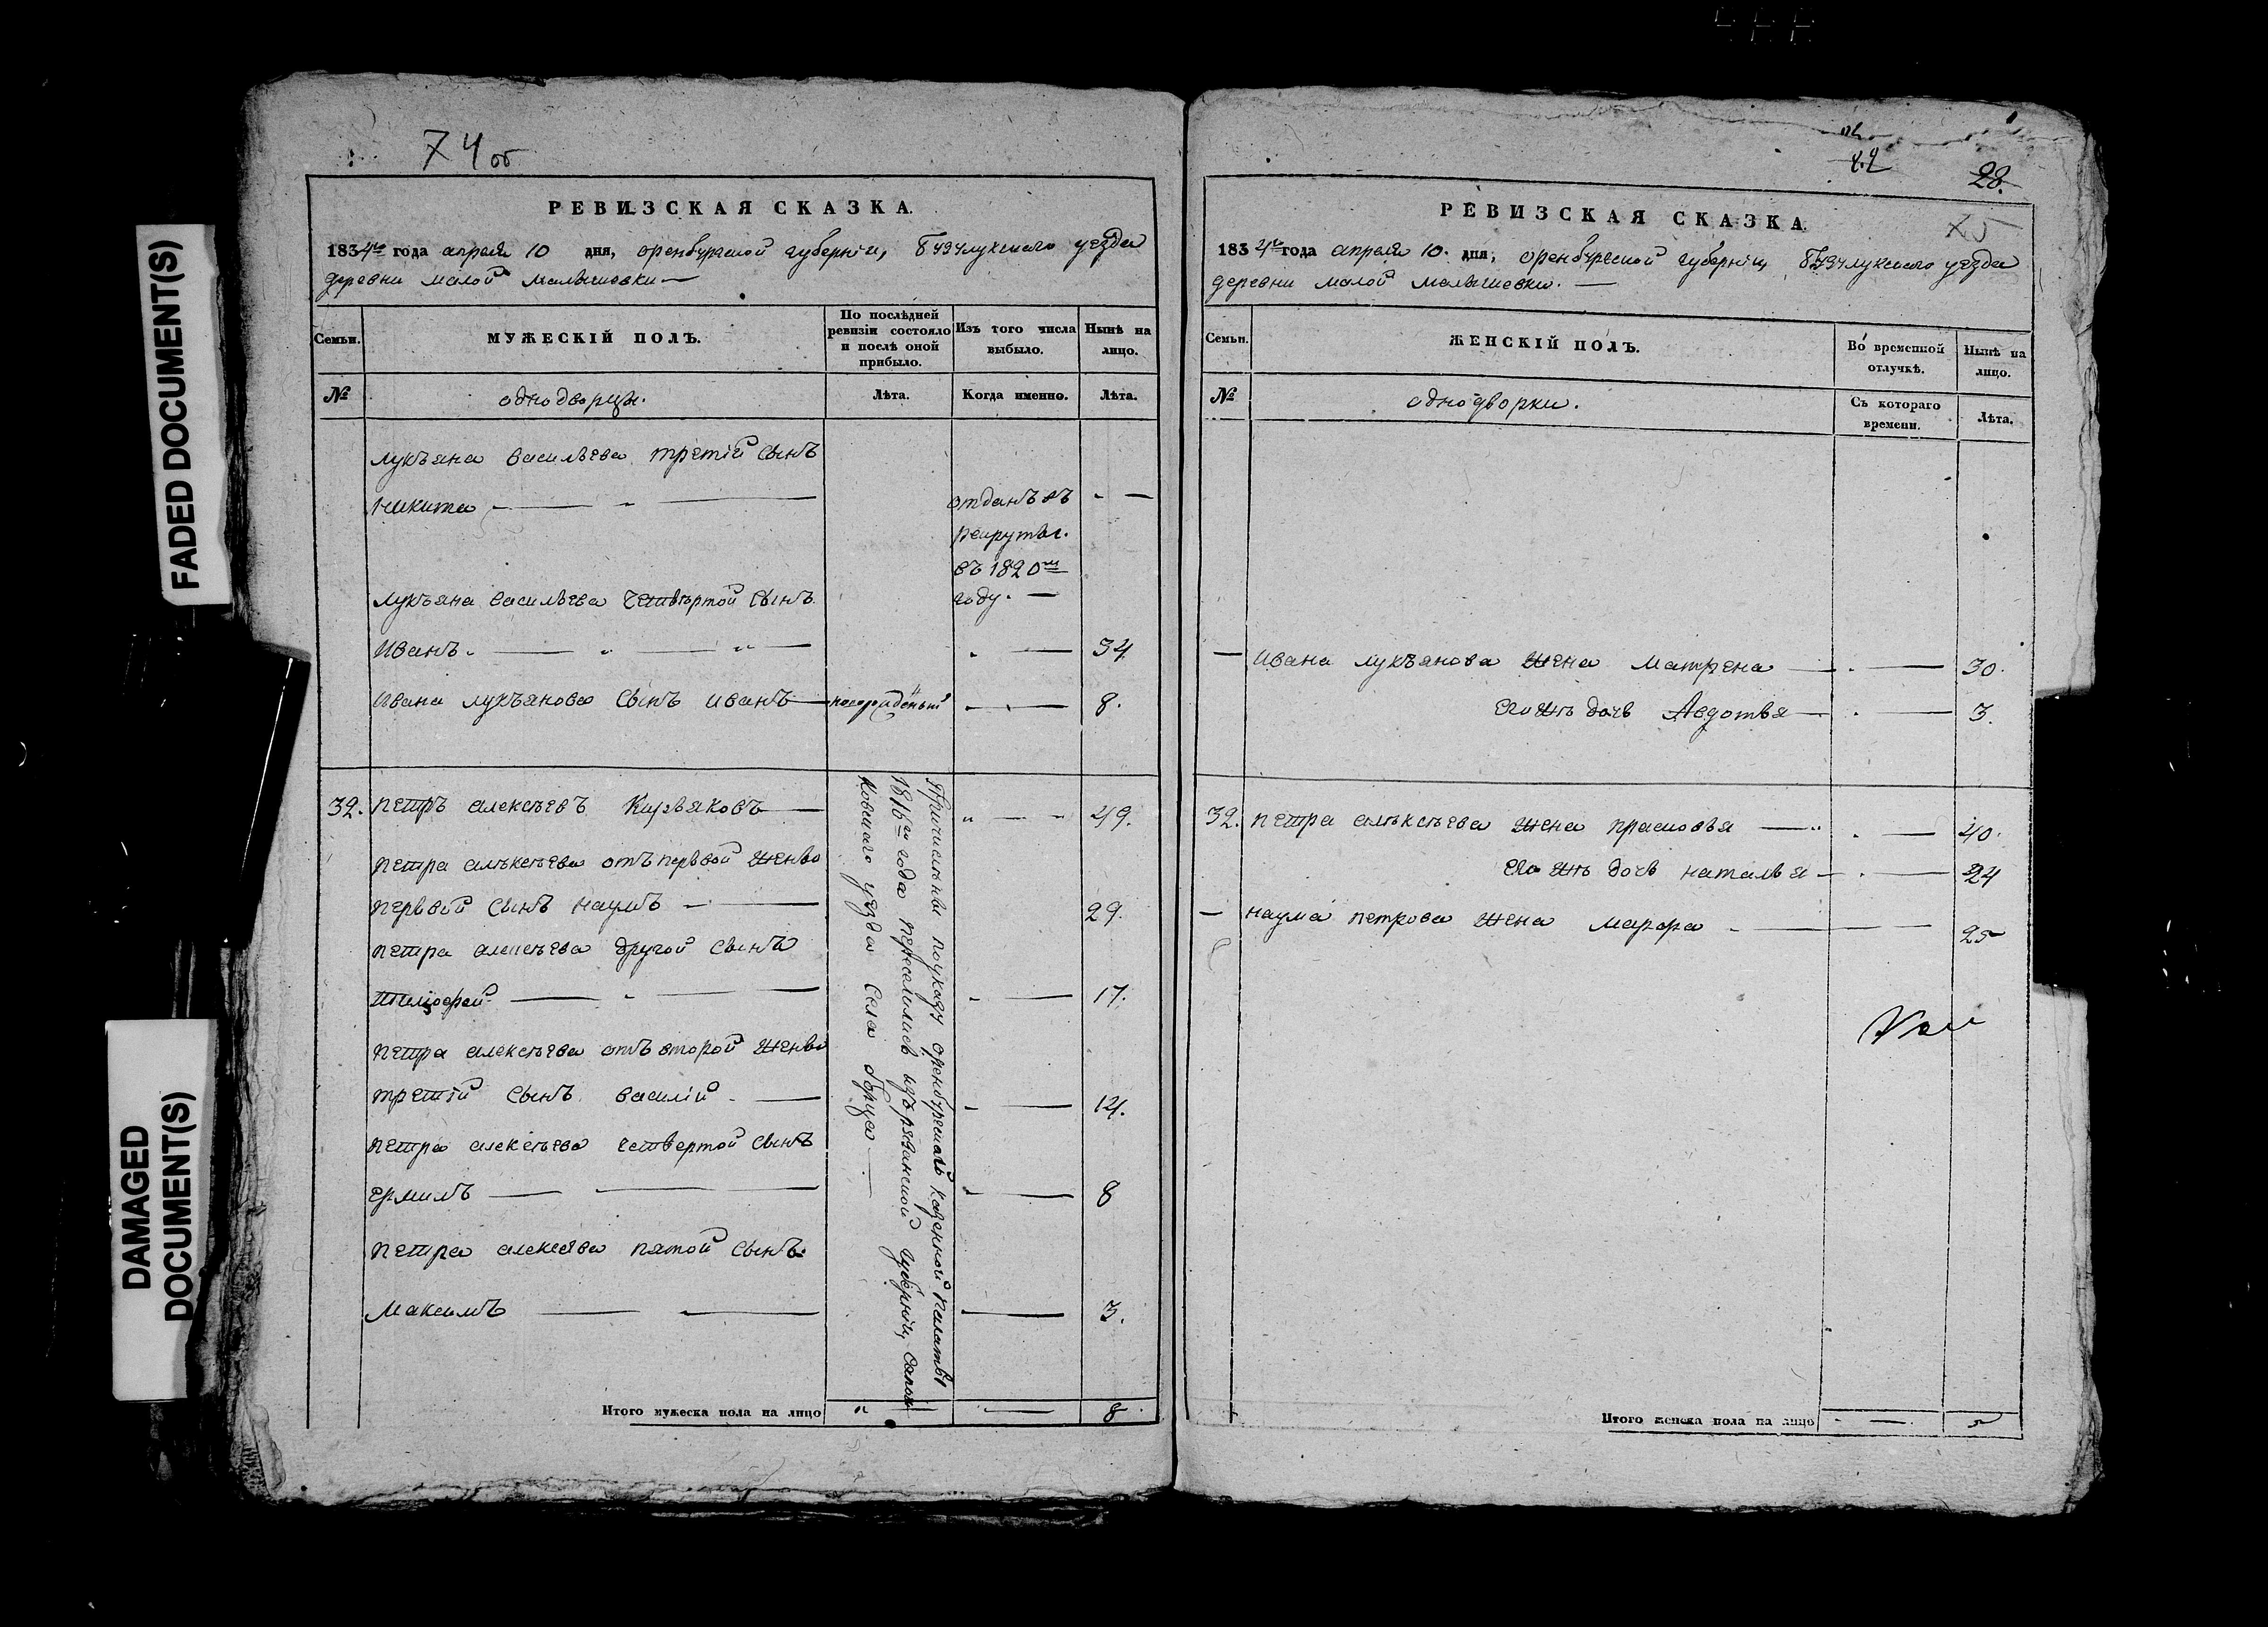 FADED DOCUMENT(S)
DAMAGED
DOCUMENT(S)
74 об
РЕВИЗСКАЯ СКАЗКА.
1834го года апреля 10 дня, оренбургской губерніи, бузулукскаго уезда
деревни малой малышевки —
Семьи.
МУЖЕСКІЙ ПОЛЪ.
По послѣдней
ревизіи состояло
и послѣ оной
прибыло.
Изъ того числа
выбыло.
Нынѣ на
лицо.
№
однодворцы.
Лѣта.
Когда именно.
Лѣта.
лукъяна васильева третій сынъ
никита — " — отданъ въ - —
рекруты.
въ 1820м
году. —
лукъяна васильева четвертой сынъ
иванъ. — " — " — . — 34
ивана лукъянова сынъ иванъ — — 8.
32. петръ алексѣевъ Кирьяковъ — " — 49.
петра алѣксѣева отъ первой жены
первой сынъ наумъ — 29.
петра алексѣева другой сынъ
тимофей — " — - — 17.
петра алексѣева отъ второй жены
третій сынъ василій — - — 14.
петра алексѣева четвертой сынъ
ермилъ — — - — 8
петра алексѣева пятой сынъ.
максимъ — — — 3.
Причислены поуказу оренбургской казенной палаты
1816го года переселились изъ рязанской губерніи, сапож
ковскаго уезда села борца —
Итого мужеска пола на лицо " — 8
28.
75
РЕВИЗСКАЯ СКАЗКА.
1834го года апреля 10. дня, оренбургской губерніи, бузулукскаго уезда
деревни малой малышевки. —
Семьи.
ЖЕНСКІЙ ПОЛЪ.
Во временной
отлучкѣ.
Нынѣ на
лицо.
№
однодворки.
Съ котораго
времени.
Лѣта.
— ивана лукъянова жена матрена — . — 30.
его жъ дочь Авдотья — . — 3.
32. петра алѣксѣева жена прасковья — " . — 40.
его жъ дочь наталья — . — 24
— наума петрова жена марфа - — — 25
Итого женска пола на лицо - — . 5